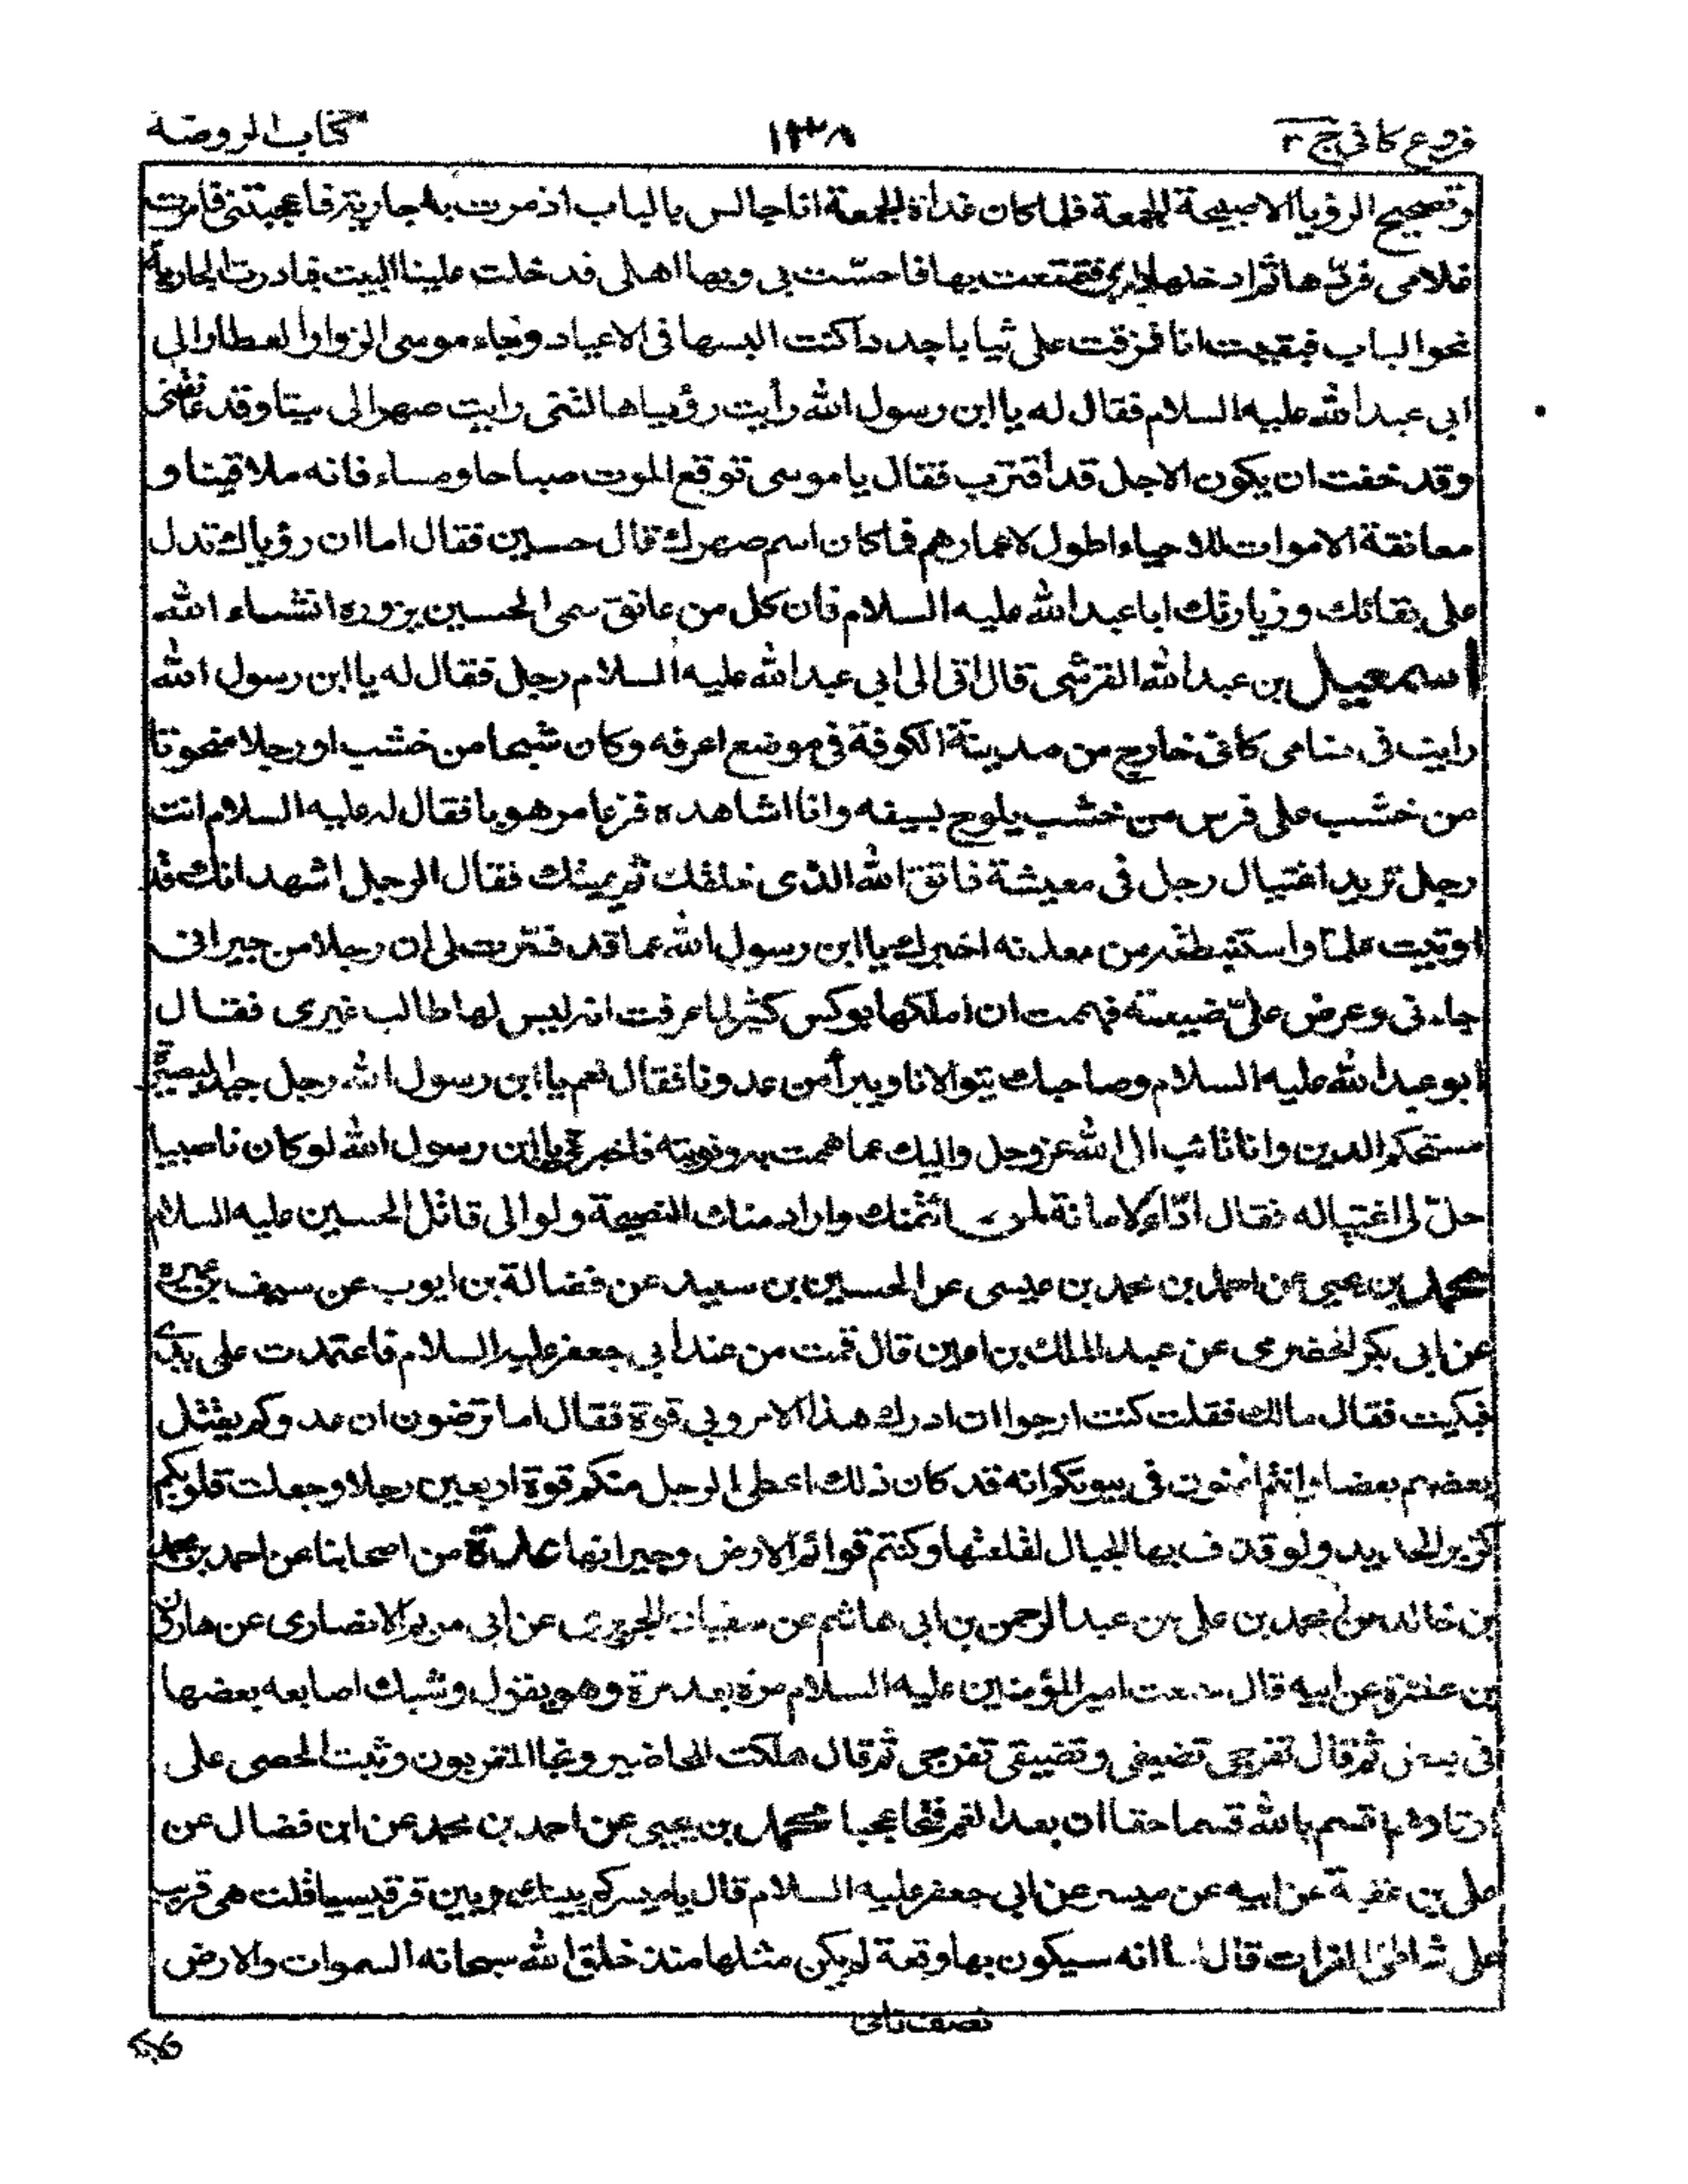 فروع كافى ج ٢
١٣٨
كتاب الروضة
وتصحيح الرؤيا الا صبيحة الجمعة فلما كان غداة الجمعة انا جالس بالباب اذ مرت بى جارية فاعجبتنى فامرت
غلامى فردّها ثم ادخلها دارى فتمتعت بها فاحسّت بى وبها اهلى فدخلت علينا البيت فبادرت الجارية
نحو الباب فبقيت انا فمزقت على ثيابا جددا كنت البسها فى الاعياد وجاء موسى الزوار العطار الى
ابى عبد الله عليه السلام فقال له يا ابن رسول الله رأيت رؤيا هالتنى رايت صهرا لى ميتا وقد عانقنى
وقد خفت ان يكون الاجل قد أقترب فقال يا موسى توقع الموت صباحا ومساء فانه ملاقينا و
معانقة الاموات للاحياء اطول لاعمارهم فما كان اسم صهرك قال حسين فقال اما ان رؤياك تدل
على بقائك وزيارتك ابا عبد الله عليه السلام فان كل من عانق سمى الحسين يزوره انشاء الله
اسمعيل بن عبد الله القرشى قال اتى الى ابى عبد الله عليه السلام رجل فقال له يا ابن رسول الله
رايت فى منامى كانى خارج من مدينة الكوفة فى موضع اعرفه وكان شبحا من خشب او رجلا منحوتا
من خشب على فرس من خشب يلوح بسيفه وانا اشاهده فزعا مرهوبا فقال له عليه السلام انت
رجل تريد اغتيال رجل فى معيشة فاتق الله الذى خلقك ثم يميتك فقال الرجل اشهد انك قد
اوتيت علما واستنبطته من معدنه اخبرك يا ابن رسول الله عما قد فسّرت لى ان رجلا من جيرانى
جاءنى وعرض علىّ ضيعته فهممت ان املكها بوكس كثير لما عرفت انه ليس لها طالب غيرى فقال
ابو عبد الله عليه السلام وصاحبك يتوالانا ويبرأ من عدونا فقال نعم يا ابن رسول الله رجل جيد البصيرة
مستحكم الدين وانا تائب الى الله عز وجل واليك مما هممت به ونويته فاخبرنى يا ابن رسول الله لو كان ناصبيا
حلّ لى اغتياله فقال ادّ الامانة لمن ائتمنك واراد منك النصيحة ولو الى قاتل الحسين عليه السلام
محمد بن يحيى عن احمد بن محمد بن عيسى عن الحسين بن سعيد عن فضالة بن ايوب عن سيف بن عميرة
عن ابى بكر الحضرمى عن عبد الملك بن اعين قال قمت من عند أبى جعفر عليه السلام فاعتمدت على يدى
فبكيت فقال مالك فقلت كنت ارجوا ان ادرك هذا الامر وبى قوة فقال اما ترضون ان عدوكم يقتل
بعضهم بعضا وانتم آمنون فى بيوتكم انه قد كان ذلك اعطى الرجل منكم قوة اربعين رجلا وجعلت قلوبكم
كزبر الحديد ولو قذف بها الجبال لقلعتها وكنتم قوام الارض وجيرانها عدة من اصحابنا عن احمد بن محمد
بن خالد عن محمد بن على عن عبد الرحمن بن ابى هاشم عن سفيان الجريرى عن ابى مريم الانصارى عن هارون
بن عنترة عن ابيه قال سمعت امير المؤمنين عليه السلام مرة بعد مرة وهو يقول وشبك اصابعه بعضها
فى بعض ثم قال تفرجى تضيقى وتضيقى تفرجى ثم قال هلكت المحاضير ونجا المقربون وثبت الحصى على
اوتادهم اقسم بالله قسما حقا ان بعد الغم فتحا عجبا محمد بن يحيى عن احمد بن محمد عن ابن فضال عن
على بن عقبة عن ابيه عن ميسر عن ابى جعفر عليه السلام قال يا ميسر كم بينك وبين قرقيسيا قلت هى قريب
على شاطئ الفرات قال اما انه سيكون بها وقعة لم يكن مثلها منذ خلق الله سبحانه السموات والارض
نصف ثانى